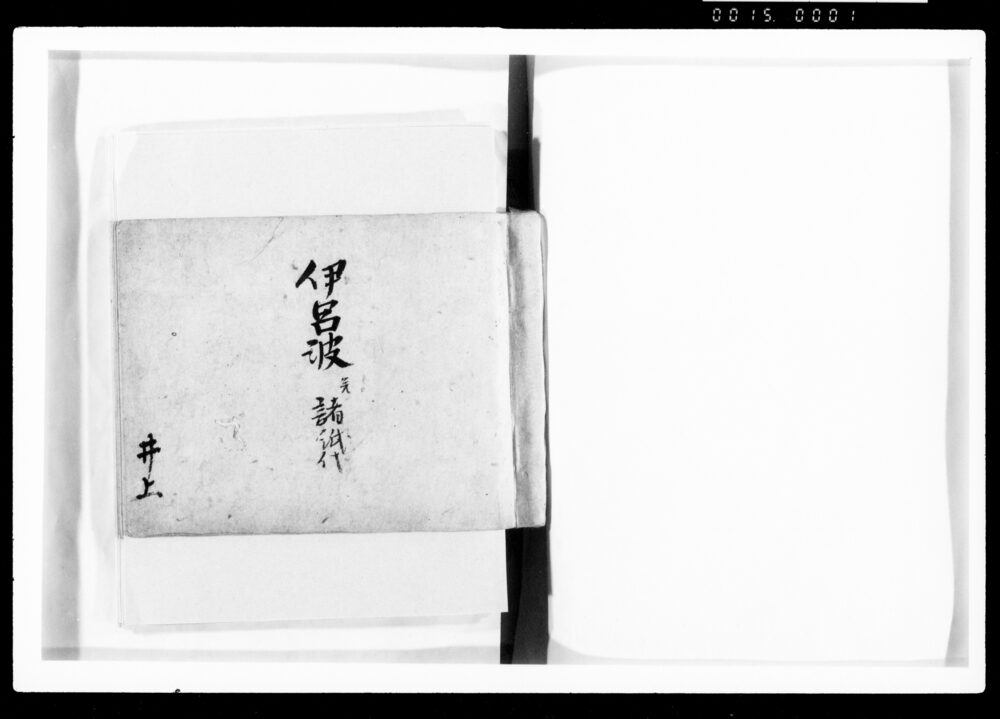 0015. 0001
伊呂波
諸
井上